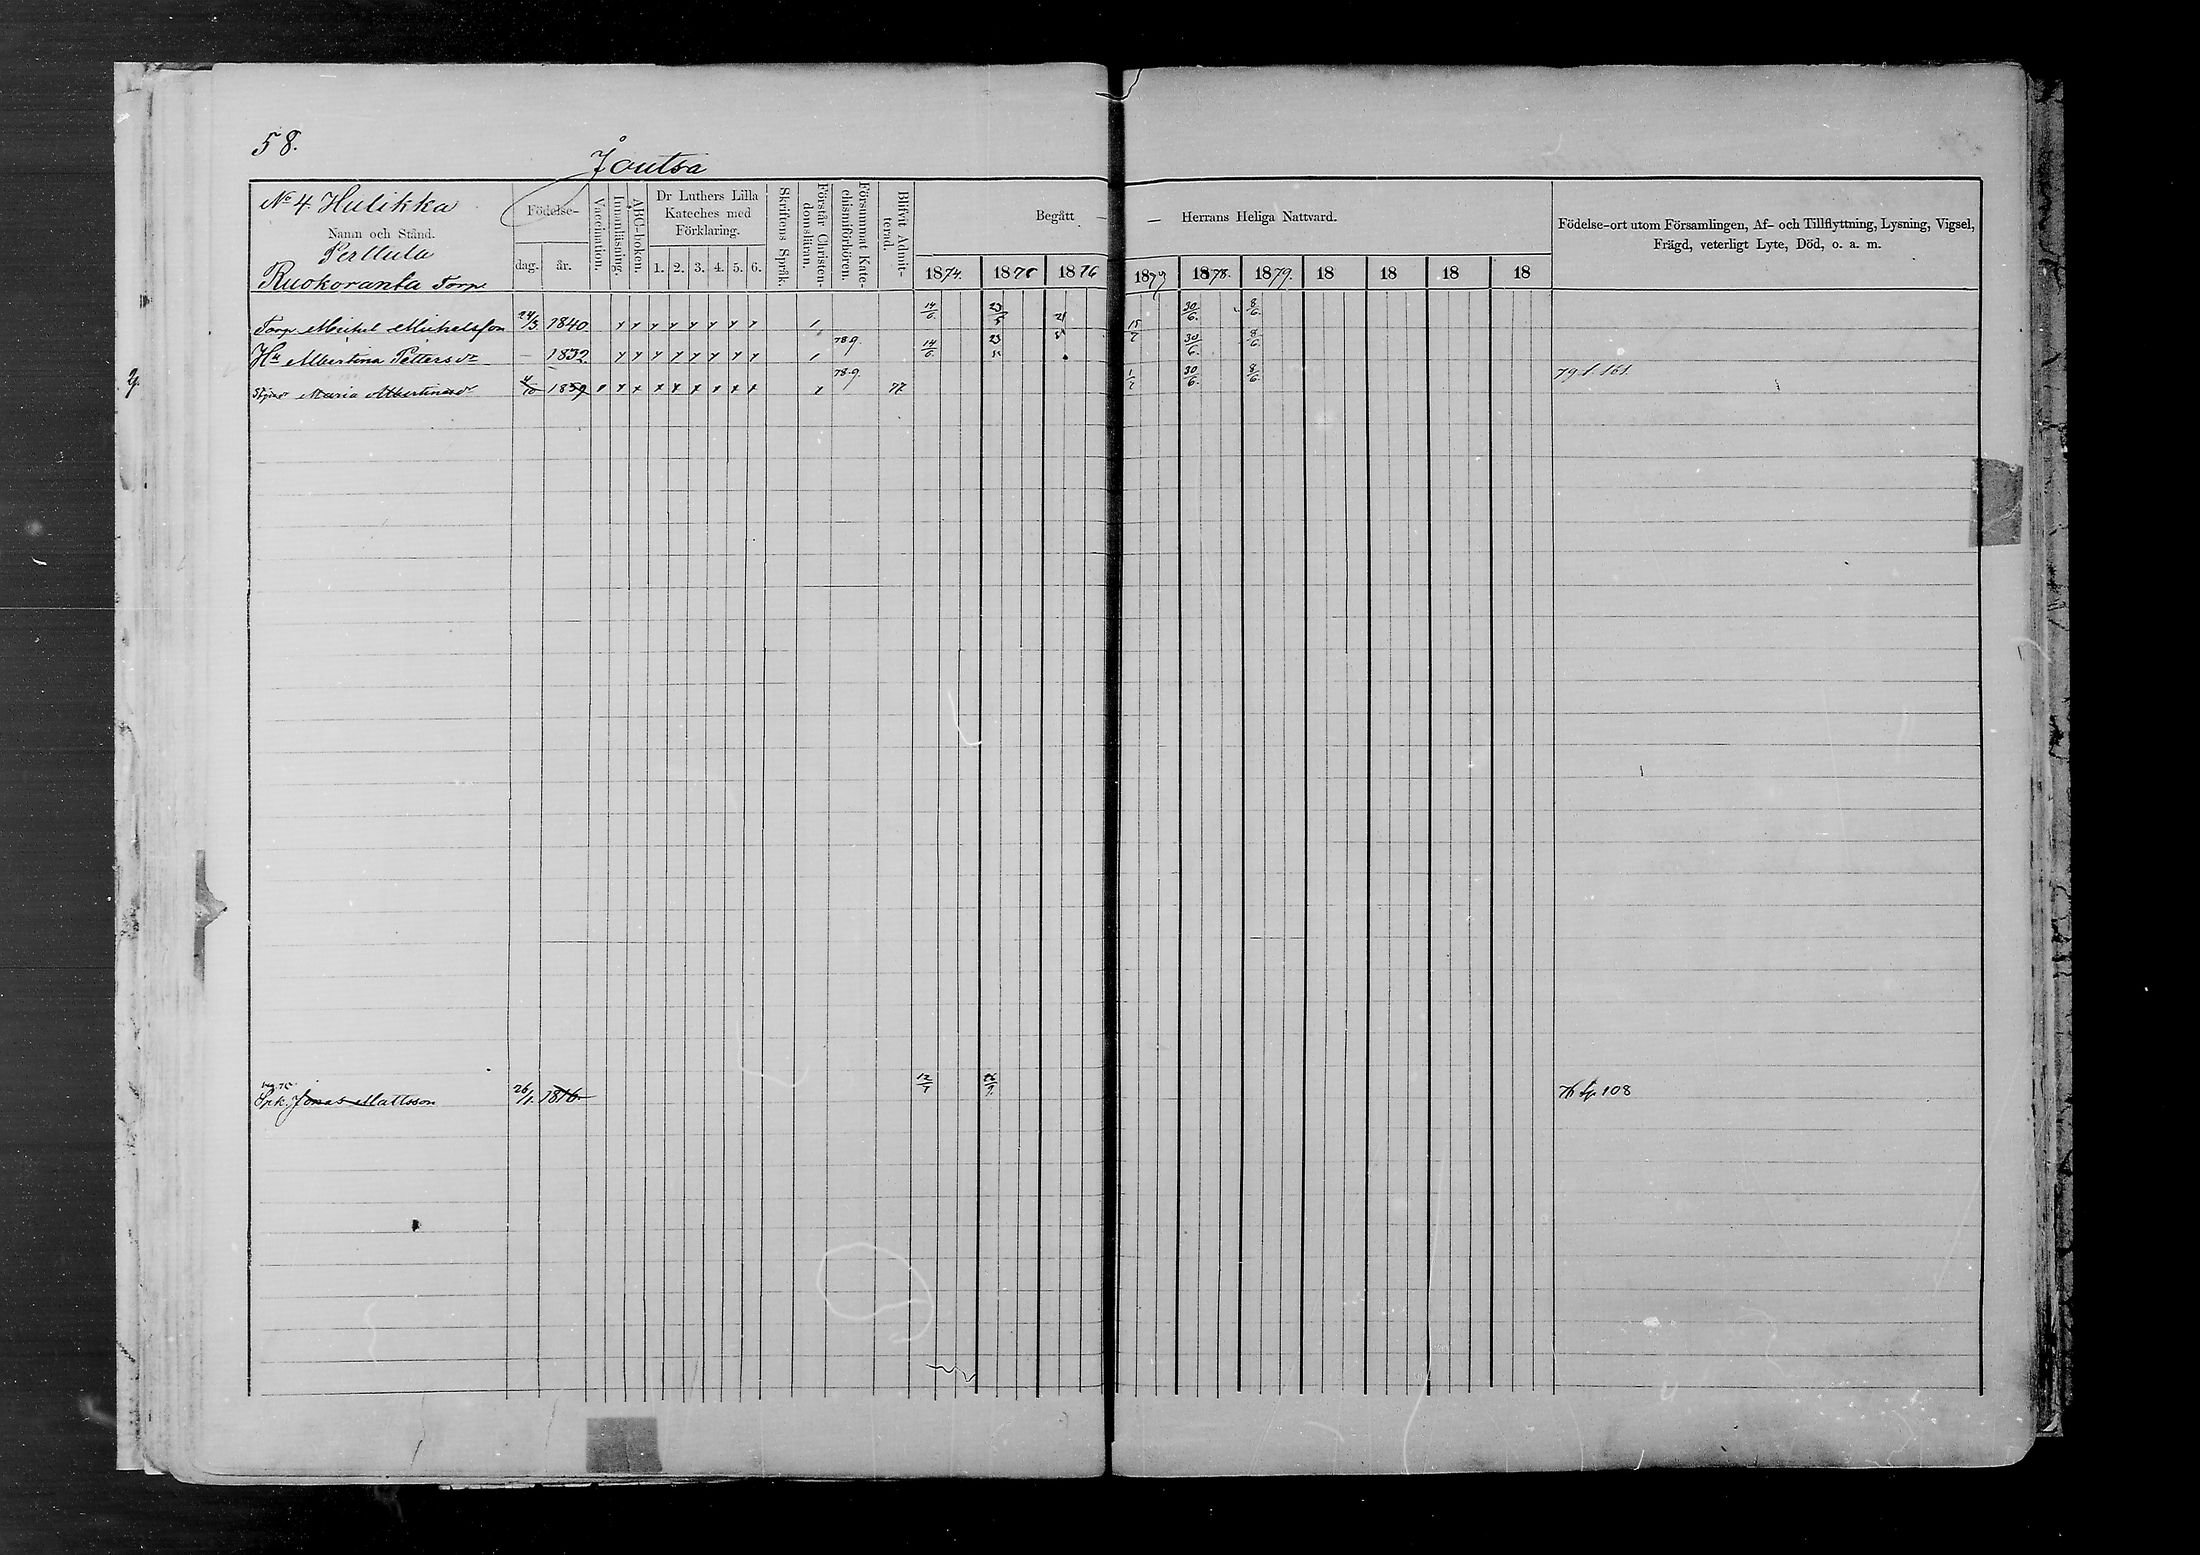 58.
Joutsa
No 4 Hulikka
Namn och Stånd.
Perttula
Ruokoranta Torp.
Födelse-
dag. år.
Vaccination.
Innanläsning.
ABC-boken.
Dr Luthers Lilla
Kateches med
Förklaring.
1. 2. 3. 4. 5. 6.
Skriftens Språk.
Förstår Christen-
domsläran.
Försummat Kate-
chismiförhören.
Blifvit Admit-
terad.
Begått — — Herrans Heliga Nattvard.
1874. 1875 1876 1877 1878. 1879. 18 18 18 18
Födelse-ort utom Församlingen, Af- och Tillflyttning, Lysning, Vigsel,
Frägd, veterligt Lyte, Död, o. a. m.
Torp Mickel Mickelsson 24/3. 1840. 14/6. 23/5 21/5 15/7 30/6. 8/6.
Hu Albertina Pettersdr — 1832. 78.9. 14/6. 23/5 30/6. 8/6
Maria Albertinasdr 4/10 1859 78.9. 77 1/7 30/6. 8/6. 79 f. 161.
Jonas Mattsson 26/1. 1816. 12/7 26/9. 108